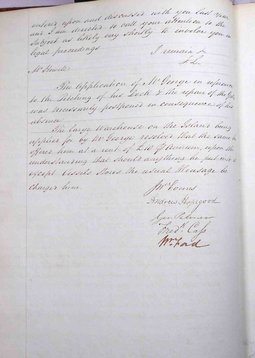 entered upon and discussed with you last year
and I am directed to call your attention to the
Subject as likely very shortly to involve you in
legal proceedings
I remain
The Application of Mr George in reference
to the letting of his Dock & the repair of the
was necessarily postponed in consequence of his
absence
The large Warehouse on the Island being
applied for by Mr George resolved that the same be
offered him at a rent of per Annum, upon the
understanding that should anything be put into it
except Vessels Stores the usual Wharfage be
charged him.
Andrew Hapgood
Fredk Cass
Wm